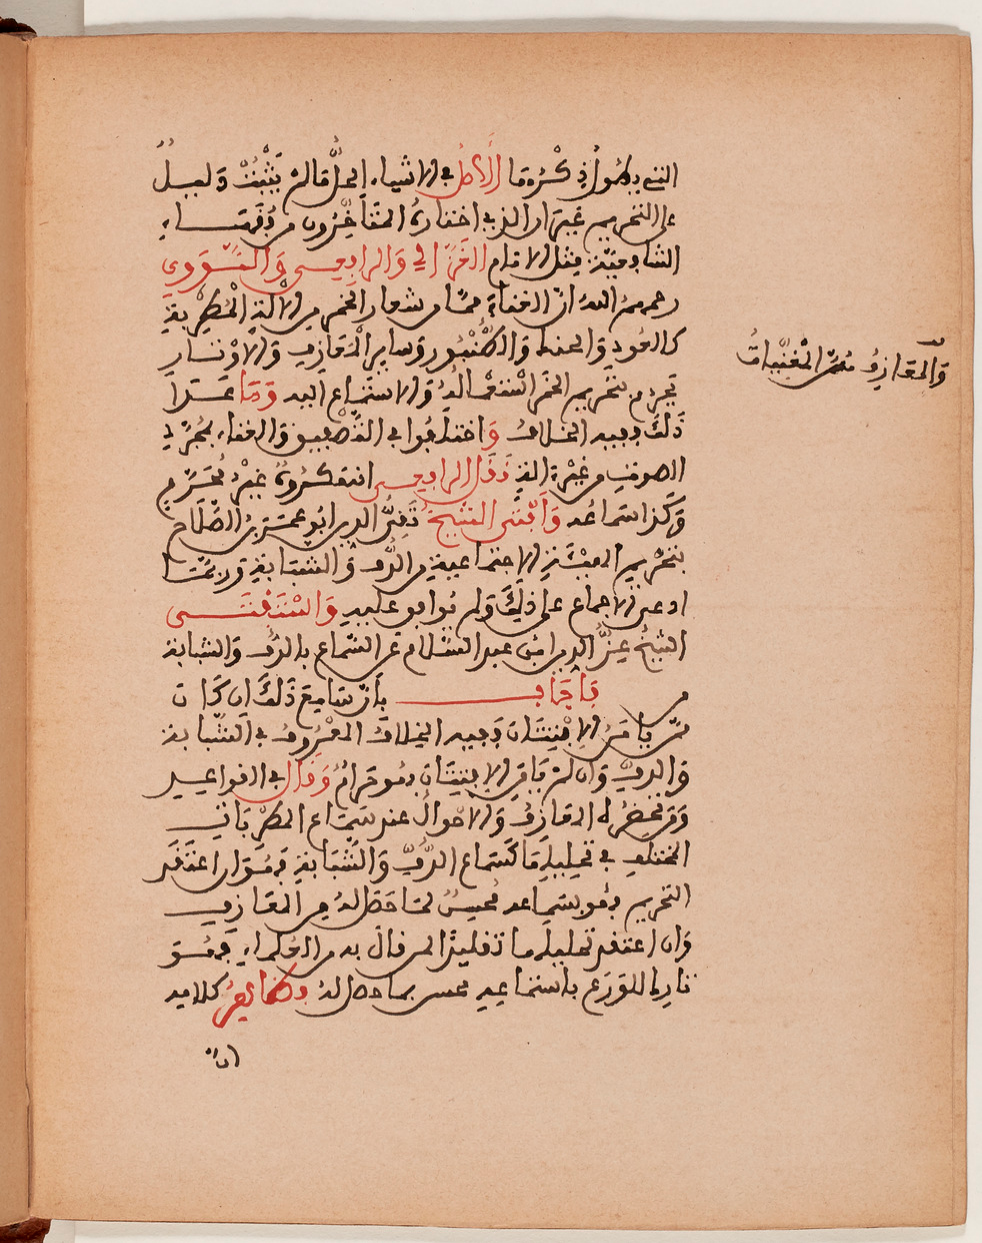 التي يطول ذكرها الأصل في الاشياء الحل مالم يثبت دليل
على التحريم غير ان الذي اختاره المتأخرون من فقهاء
الشافعية مثل الامام الغزالي والرافعي والنووي
رحمهم الله ان الغناء مما من شعار الخمر من الآلة المطربة
كالعود والجنك والطنبور وساير المعازف والاوتار
يحرم تحريم الخمر استعماله والاستماع اليه وما عدا
ذلك ففيه الخلاف واختلفوا في التصفيق والغناء بمجرد
الصوت من غير الة قال الرافعي انه مكروه غير محرم
وكذا سماعه وأفتى الشيخ تقي الدين ابو عمر بن الصلاح
بتحريم الهيئة الاجتماعية من الدف والشبابة وربما
ادعى الاجماع على ذلك ولم يوافق عليه واستفتي
الشيخ عز الدين ابن عبد السلام عن السماع بالدف والشبابة
فأجاب بأن سامع ذلك ان كان من
من يامن الافتتان ففيه الخلاف المعروف في الشبابة
والدف وان لم يامن الافتتان فهو حرام وقال في القواعد
ومن تحضره المعارف والاحوال عند سماع المطربات
المختلف في تحليلها كسماع الدف والشبابة فهو ان اعتقد
التحريم فهو بسماعه مسيء محسن لما حصل له من المعارف
وان اعتقد تحليلها تقليدا لمن قال به من العلماء فهو
تارك للورع باستماعه محسن بما حصل له وظاهر كلامه
ان
والمعازف هن المغنيات